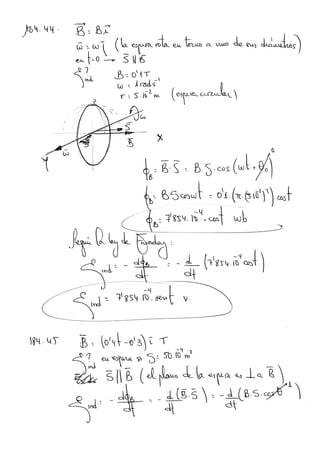 184.44. B⃗ = B i⃗
ω⃗ = ω j⃗ (la espira rota en torno a uno de sus diámetros)
en t=0 → S⃗ ∥ B⃗
ε ind ? B = 0'1 T
ω = 1 rad s⁻¹
r = 5·10⁻² m (espira circular)
z
ω
S⃗
B⃗ X
Y ω⃗
ϕ_B = B⃗·S⃗ = B S·cos(ωt + θ₀) 0
ϕ_B = B S cos ωt = 0'1·(π·(5·10⁻²)²) cos t
ϕ_B = 7'854·10⁻⁴·cos t Wb
Según la ley de Faraday:
ε ind = - dϕ_B/dt = - d/dt (7'854·10⁻⁴ cos t)
ε ind = 7'854·10⁻⁴·sen t V.
184.45 B⃗ = (0'4t - 0'3) i⃗ T
ε ind ? en espira si S = 50·10⁻⁴ m²
S⃗ ∥ B⃗ (el plano de la espira es ⊥ a B⃗)
ε ind = - dϕ_B/dt = - d(B⃗·S⃗)/dt = - d/dt (B·S·cos 0) 1